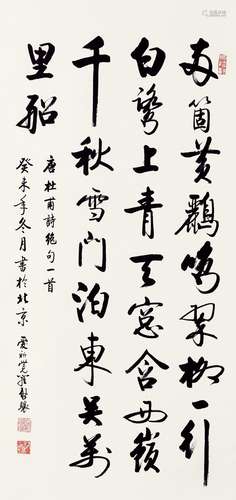 兩箇黄鸝鳴翠柳一行
白鷺上青天窓含西嶺
千秋雪門泊東吴萬
里船
唐杜甫詩絶句一首
癸未年冬月書於北京 愛新覺羅